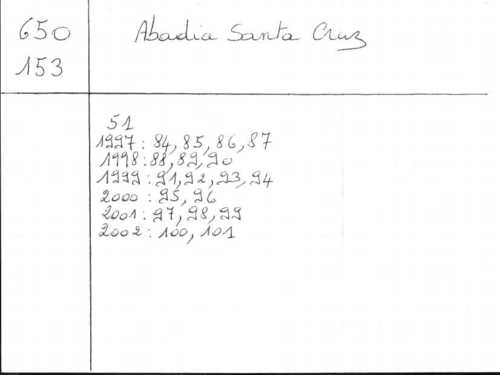 650
153
Abadia Santa Cruz
51
1997: 84, 85, 86, 87
1998: 88, 89, 90
1999: 91, 92, 93, 94
2000: 95, 96
2001: 97, 98, 99
2002: 100, 101